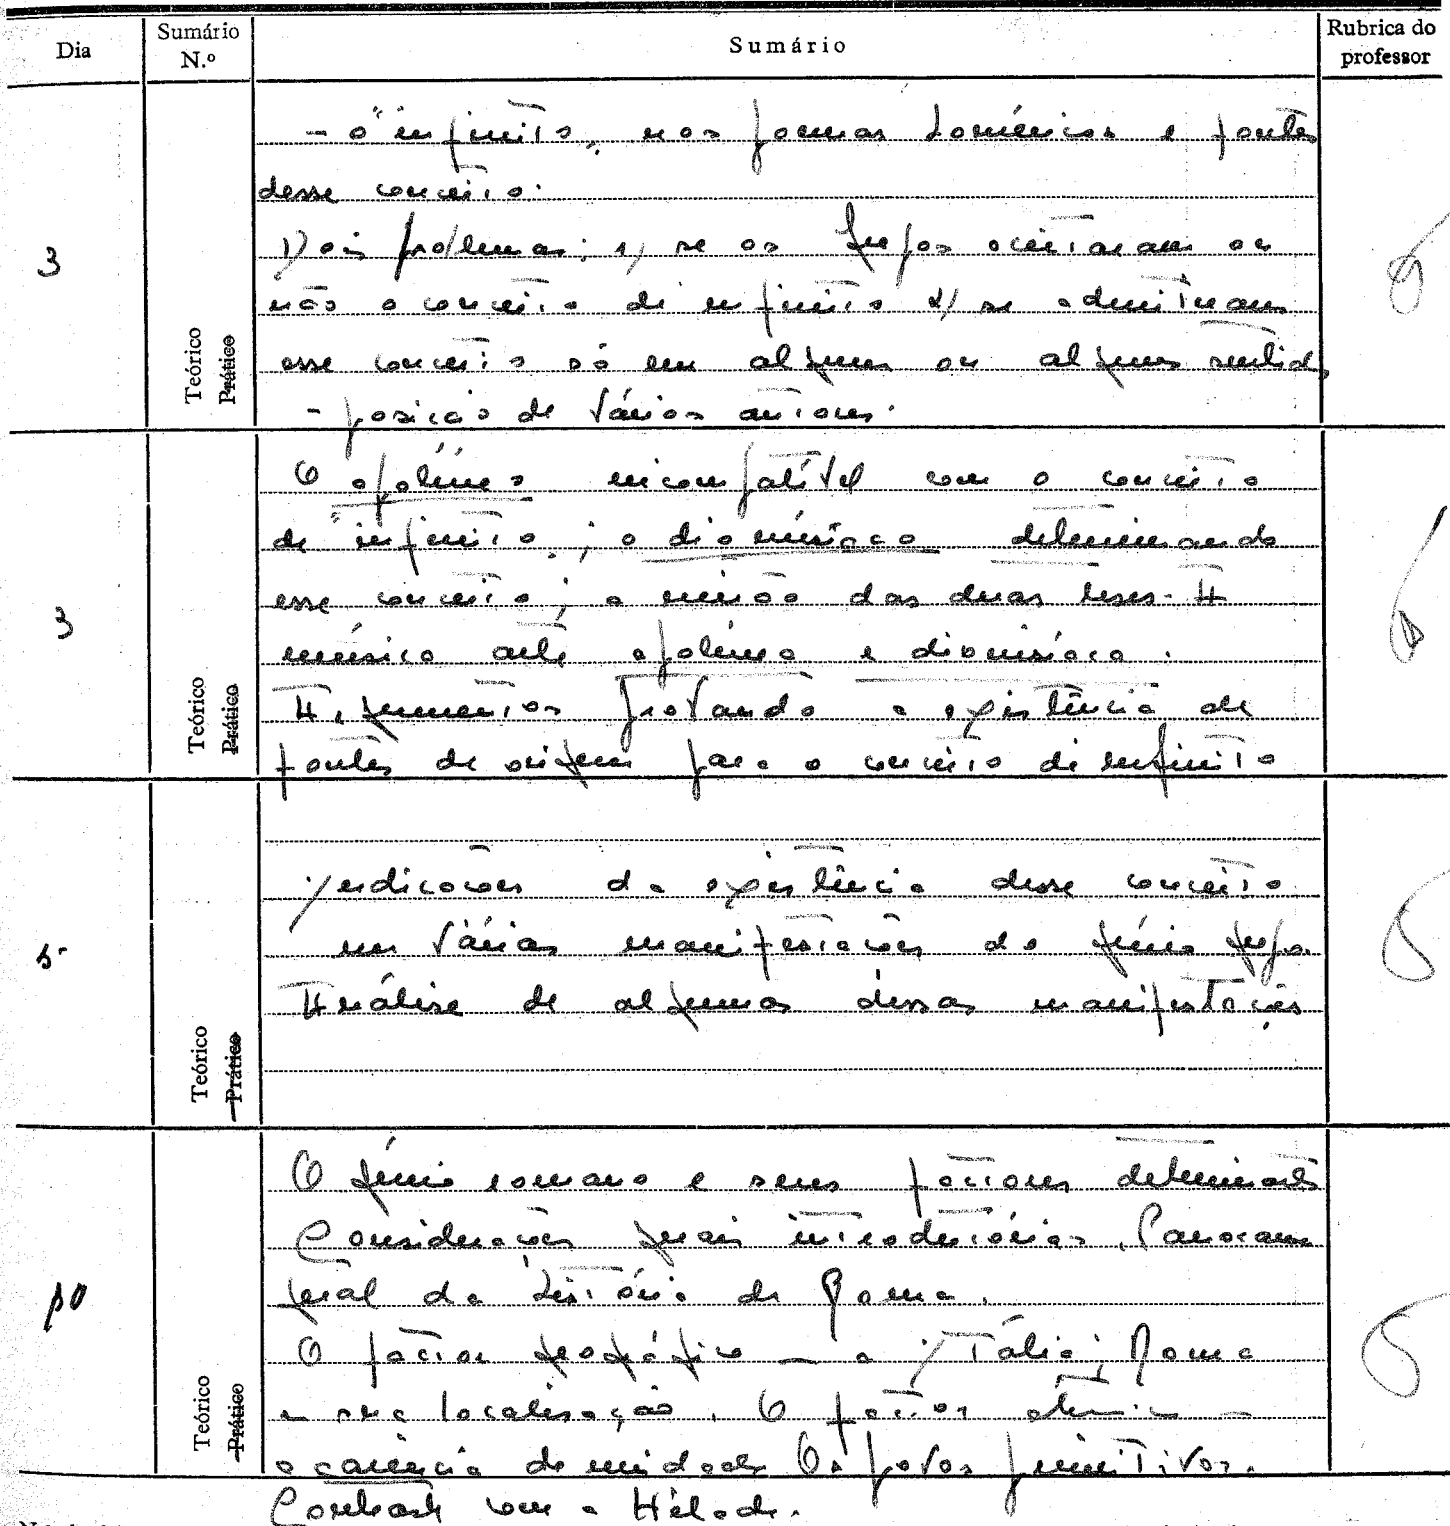 Dia
Sumário N.º
Sumário
Rubrica do professor
3
Teórico
Prático
- o "infinito" nos poemas homéricos e fontes
desse conceito.
Dois problemas: 1) se os gregos aceitaram ou
não o conceito de infinito 2) se admitiram
esse conceito só em algum ou alguns sentidos
- posição de vários autores.
3
Teórico
Prático
O apolíneo incompatível com o conceito
de "infinito"; o dionisíaco determinando
esse conceito; a união das duas teses. A
música arte apolínea e dionisíaca.
Argumentos provando a existência de
fontes de origem para o conceito de infinito
5
Teórico
Prático
Indicações da existência desse conceito
em várias manifestações do génio grego.
Análise de algumas dessas manifestações
10
Teórico
Prático
O génio romano e seus factores determinantes
Considerações gerais introdutórias. Panorama
geral da história de Roma.
O factor geográfico - a Itália; Roma
e sua localização. O factor étnico -
a carência de unidade. Os povos primitivos.
Contraste com a Hélade.